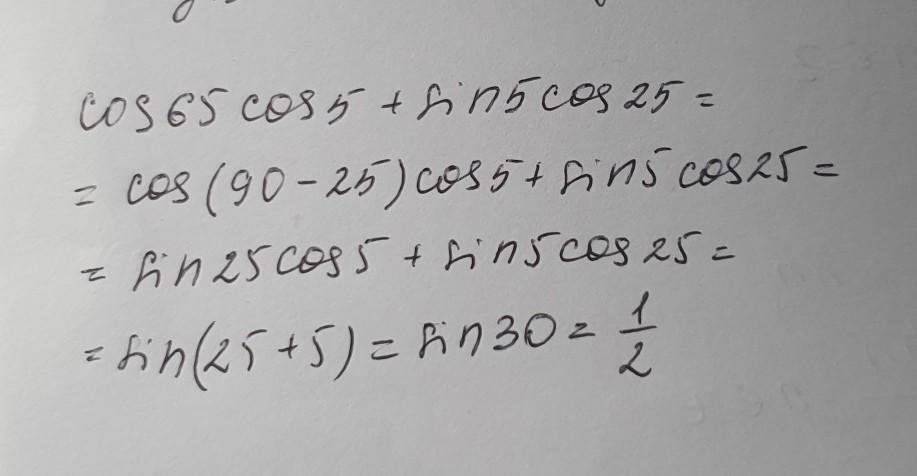 cos 65 cos 5 + sin 5 cos 25 =
= cos (90 - 25) cos 5 + sin 5 cos 25 =
= sin 25 cos 5 + sin 5 cos 25 =
= sin(25 + 5) = sin 30 = 1/2